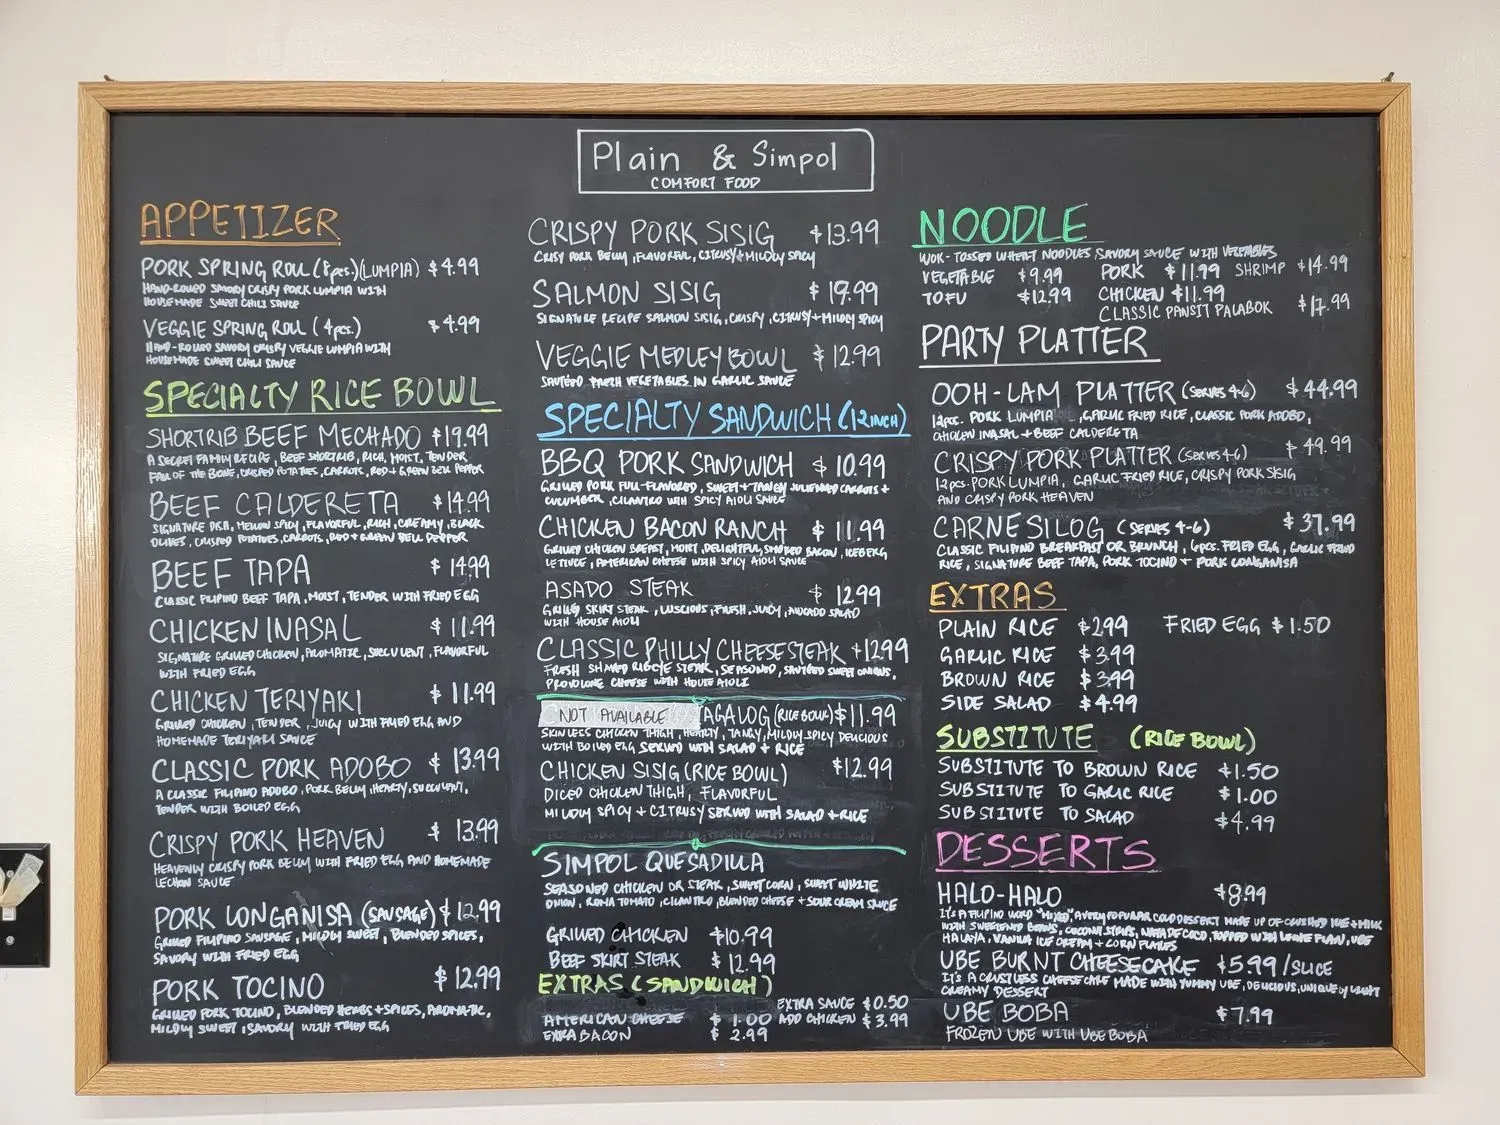 Plain & Simpol
COMFORT FOOD
APPETIZER
PORK SPRING ROLL (8pcs.) (LUMPIA) $4.99
HAND-ROLLED SAVORY CRISPY PORK LUMPIA WITH
HOUSEMADE SWEET CHILI SAUCE
VEGGIE SPRING ROLL (4pcs.) $4.99
HAND-ROLLED SAVORY CRISPY VEGGIE LUMPIA WITH
HOUSEMADE SWEET CHILI SAUCE
SPECIALTY RICE BOWL
SHORTRIB BEEF MECHADO $19.99
A SECRET FAMILY RECIPE, BEEF SHORTRIB, RICH, MOIST, TENDER
FALL OF THE BONE, CRISPED POTATOES, CARROTS, RED + GREEN BELL PEPPER
BEEF CALDERETA $14.99
SIGNATURE DISH, MELLOW SPICY, FLAVORFUL, RICH, CREAMY, BLACK
OLIVES, CRISPED POTATOES, CARROTS, RED + GREEN BELL PEPPER
BEEF TAPA $14.99
CLASSIC FILIPINO BEEF TAPA, MOIST, TENDER WITH FRIED EGG
CHICKEN INASAL $11.99
SIGNATURE GRILLED CHICKEN, AROMATIC, SUCCULENT, FLAVORFUL
WITH FRIED EGG
CHICKEN TERIYAKI $11.99
GRILLED CHICKEN, TENDER, JUICY WITH FRIED EGG AND
HOMEMADE TERIYAKI SAUCE
CLASSIC PORK ADOBO $13.99
A CLASSIC FILIPINO ADOBO, PORK BELLY, HEARTY, SUCCULENT,
TENDER WITH BOILED EGG
CRISPY PORK HEAVEN $13.99
HEAVENLY CRISPY PORK BELLY WITH FRIED EGG AND HOMEMADE
LECHON SAUCE
PORK LONGANISA (SAUSAGE) $12.99
GRILLED FILIPINO SAUSAGE, MILDLY SWEET, BLENDED SPICES,
SAVORY WITH FRIED EGG
PORK TOCINO $12.99
GRILLED PORK TOCINO, BLENDED HERBS + SPICES, AROMATIC,
MILDLY SWEET, SAVORY WITH FRIED EGG
CRISPY PORK SISIG $13.99
CRISY PORK BELLY, FLAVORFUL, CITRUSY + MILDLY SPICY
SALMON SISIG $19.99
SIGNATURE RECIPE SALMON SISIG, CRISPY, CITRUSY + MILDLY SPICY
VEGGIE MEDLEY BOWL $12.99
SAUTÉED FRESH VEGETABLES IN GARLIC SAUCE
SPECIALTY SANDWICH (12 INCH)
BBQ PORK SANDWICH $10.99
GRILLED PORK FULL-FLAVORED, SWEET + TANGY JULIENNED CARROTS +
CUCUMBER, CILANTRO WITH SPICY AIOLI SAUCE
CHICKEN BACON RANCH $11.99
GRILLED CHICKEN BREAST, MOIST, DELIGHTFUL, SMOKED BACON, ICEBERG
LETTUCE, AMERICAN CHEESE WITH SPICY AIOLI SAUCE
ASADO STEAK $12.99
GRILLED SKIRT STEAK, LUSCIOUS, FRESH, JUICY, AVOCADO SALAD
WITH HOUSE AIOLI
CLASSIC PHILLY CHEESESTEAK $12.99
FRESH SHAVED RIBEYE STEAK, SEASONED, SAUTÉED SWEET ONIONS,
PROVOLONE CHEESE WITH HOUSE AIOLI
NOT AVAILABLE TAGALOG (RICE BOWL) $11.99
SKINLESS CHICKEN THIGH, HEARTY, TANGY, MILDLY SPICY DELICIOUS
WITH BOILED EGG SERVED WITH SALAD + RICE
CHICKEN SISIG (RICE BOWL) $12.99
DICED CHICKEN THIGH, FLAVORFUL
MILDLY SPICY + CITRUSY SERVED WITH SALAD + RICE
SIMPOL QUESADILLA
SEASONED CHICKEN OR STEAK, SWEET CORN, SWEET WHITE
ONION, ROMA TOMATO, CILANTRO, BLENDED CHEESE + SOUR CREAM SAUCE
GRILLED CHICKEN $10.99
BEEF SKIRT STEAK $12.99
EXTRAS (SANDWICH)
EXTRA SAUCE $0.50
AMERICAN CHEESE $1.00 ADD CHICKEN $3.99
EXTRA BACON $2.99
NOODLE
WOK-TOSSED WHEAT NOODLES SAVORY SAUCE WITH VEGETABLES
VEGETABLE $9.99 PORK $11.99 SHRIMP $14.99
TOFU $12.99 CHICKEN $11.99
CLASSIC PANSIT PALABOK $17.99
PARTY PLATTER
OOH-LAM PLATTER (SERVES 4-6) $44.99
12pcs. PORK LUMPIA, GARLIC FRIED RICE, CLASSIC PORK ADOBO,
CHICKEN INASAL + BEEF CALDERETA
CRISPY PORK PLATTER (SERVES 4-6) $49.99
12pcs. PORK LUMPIA, GARLIC FRIED RICE, CRISPY PORK SISIG
AND CRISPY PORK HEAVEN
CARNE SILOG (SERVES 4-6) $37.99
CLASSIC FILIPINO BREAKFAST OR BRUNCH, 6pcs. FRIED EGG, GARLIC FRIED
RICE, SIGNATURE BEEF TAPA, PORK TOCINO + PORK LONGANISA
EXTRAS
PLAIN RICE $2.99 FRIED EGG $1.50
GARLIC RICE $3.99
BROWN RICE $3.99
SIDE SALAD $4.99
SUBSTITUTE (RICE BOWL)
SUBSTITUTE TO BROWN RICE $1.50
SUBSTITUTE TO GARLIC RICE $1.00
SUBSTITUTE TO SALAD $4.99
DESSERTS
HALO-HALO $8.99
IT'S A FILIPINO WORD "MIXED", A VERY POPULAR COLD DESSERT MADE UP OF CRUSHED ICE + MILK
WITH SWEETENED BEANS, COCONUT STRIPS, NATA DE COCO, TOPPED WITH LECHE FLAN, UBE
HALAYA, VANILLA ICE CREAM + CORN FLAKES
UBE BURNT CHEESECAKE $5.99/SLICE
IT'S A CRUSTLESS CHEESECAKE MADE WITH YUMMY UBE, DELICIOUS, UNIQUELY LIGHT
CREAMY DESSERT
UBE BOBA $7.99
FROZEN UBE WITH UBE BOBA